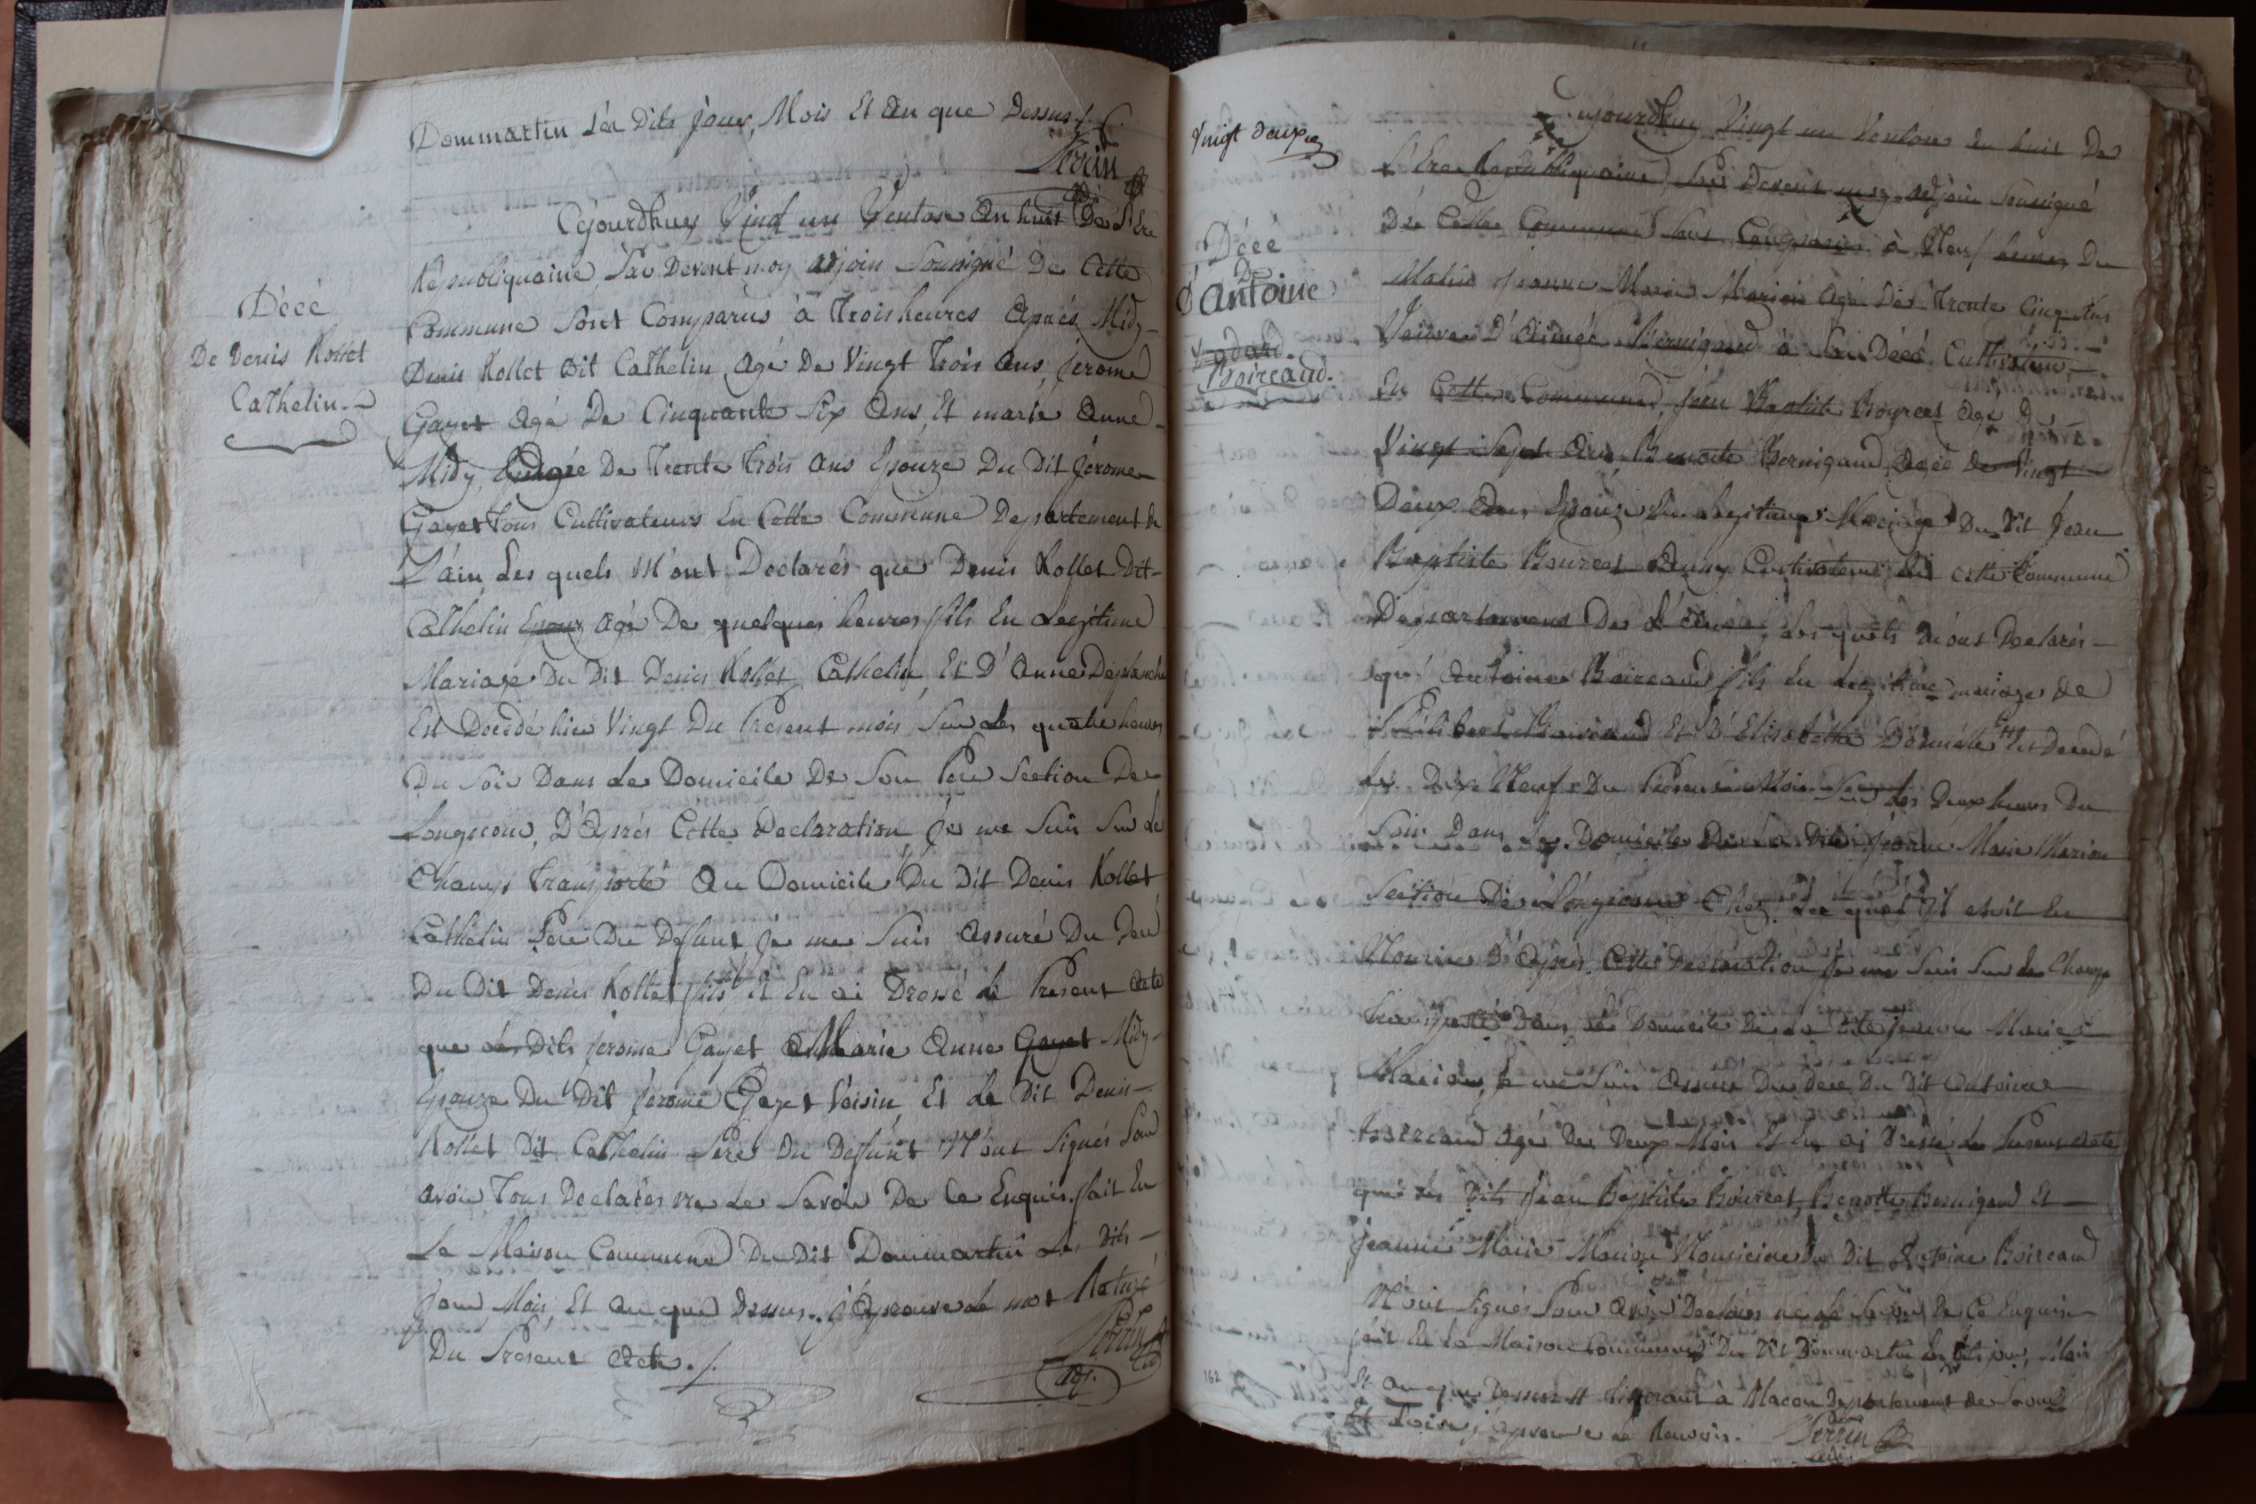 Dommartin Les Dits jour, Mois Et an que Dessus ./.
Perrin
adj
Cejourdhuy Vingt un Ventose an huit De L'Ere
Républiquaine, Par Devent moy adjoin Soussigné De Cette
Commune Sont Comparus à Trois heures Après Midy
Décé
De Denis Rollet
Cathelin
Denis Rollet Dit Cathelin, Agé De Vingt Trois Ans, Jerome
Gayet Agé De Cinquante Six Ans, Et marie Anne
Midy, Agée De Trente Trois Ans Epouze Du Dit Jérome
Gayet Tous Cultivateurs En Cette Commune Departement De
L'ain Les quels M'ont Declarés que Denis Rollet Dit
Cathelin Epoux Agé De quelques heures fils En Legitime
Mariage Du Dit Denis Rollet Cathelin, Et D'Anne Deplanche
Est Decedé hier Vingt Du Présent mois Sur Les quatre heures
Du Soir Dans Le Domicile De Son Pere Section De
Longecour, D'Après Cette Declaration Je me Suis Sur Le
Champs Transporté Au Domicile Du Dit Denis Rollet
Cathelin Pere Du Defunt Je me Suis Assuré Du Décé
Du Dit Denis Rollet fils Et En ai Drossé Le Présent Acte
que Les Dits Jerome Gayet Marie Anne Gayet Midy
Epouze Du Dit Jérome Gayet Voisin, Et Le Dit Denis
Rollet Dit Cathelin Pere Du Defunt N'ont Signés Pour
avoir Tous Declarés ne Le Savoir De Ce Enquis. fait En
La Maison Commune Du Dit Dommartin Les Dits
Jour Mois Et an que Dessus. J'Aprouve Le mot Raturé
Du Présent Acte ./.
Perrin
adj.
Vingt Deux
Cejourdhuy Vingt un Ventose an huit De
L'Ere Républiquaine, Par Devent moy Adjoin Soussigné
De Cette Commune Sont Comparus à Neuf heures Du
Décé
De
Antoine
Boireaud.
Matin Jeanne Marie Marion Agé De Trente Cinq Ans
Veuve D'Aimée Bernigaud à Son Décé Cultivateur
En Cette Commune, Jean Baptiste Bourcet Agé De
Vingt Sept Ans, Benoite Bernigaud Agée De Vingt
Deux Ans Epouze En Legitime Mariage Du Dit Jean
Baptiste Bourcet Cultivateurs En Cette Commune
Departement De L'ain, Les quels M'ont Declarés
que Antoine Boireaud fils En Legitime mariage De
Philibert Boireaud Et D'Elisabethe Est Decedé
Le Dix Neuf Du Présent Mois Sur Les Deux heures Du
Soir Dans Le Domicile De La Dite Jeanne Marie Marion
Section De Longecour Chez Le quel Il etoit En
Nourice D'Après Cette Declaration Je me Suis Sur Le Champs
Transporté Dans Le Domicile De La Dite Jeanne Marie
Marion, Je me Suis Assuré Du Décé Du Dit Antoine
Boireaud Agé De Deux Mois Et En ai Dressé Le Présent Acte
que Les Dits Jean Baptiste Bourcet, Benoite Bernigaud Et
Jeanne Marie Marion Nouriciere Du Dit Antoine Boireaud
N'ont Signés Pour Avoir Declarés ne Le Savoir De Ce Enquis
fait En La Maison Commune Du Dit Dommartin Les Dits jour, Mois
Et An que Dessus Et à Macon Departement De Saone
Et Loire, J'aprouve Le Renvoi.
Perrin
adj
162